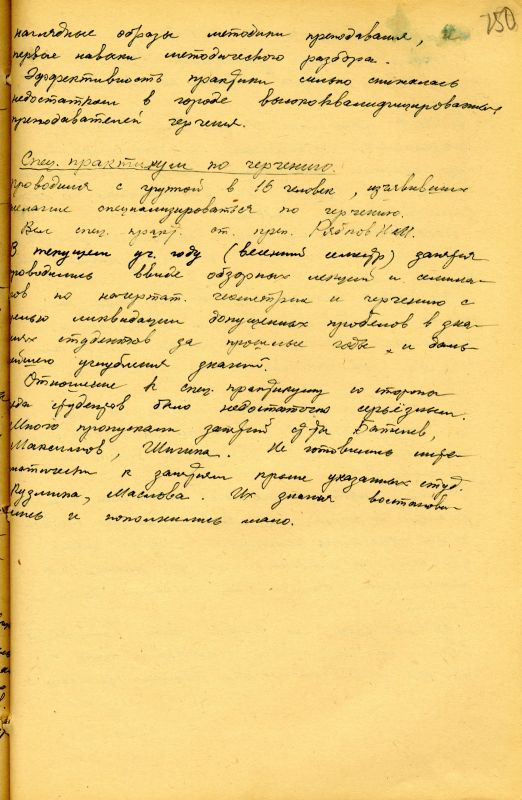 150
наглядные образы методики преподавания, и
первые навыки методического разбора.
Эффективность практики сильно снижалась
недостатком в городе высококвалифицированных
преподавателей черчения.
Спец. практикум по черчению.
проводился с группой в 16 человек, изъявивших
желание специализироваться по черчению.
Вел спец. практ. ст. преп. Рябков Н.М.
В текущем уч. году (весенний семестр) занятия
проводились ввиде обзорных лекций и семина-
ров по начертат. геометрии и черчению с
целью ликвидации допущенных пробелов в зна-
ниях студентов за прошлые годы и даль-
нейшего углубления знаний.
Отношение к спец. практикуму со стороны
ряда студентов было недостаточно серьёзным.
Много пропускали занятий студ.
Максимов, Шигина. Не готовились систе-
матически к занятиям кроме указанных студ.
Кузмина, Маслова. Их знания востанови-
лись и пополнились мало.